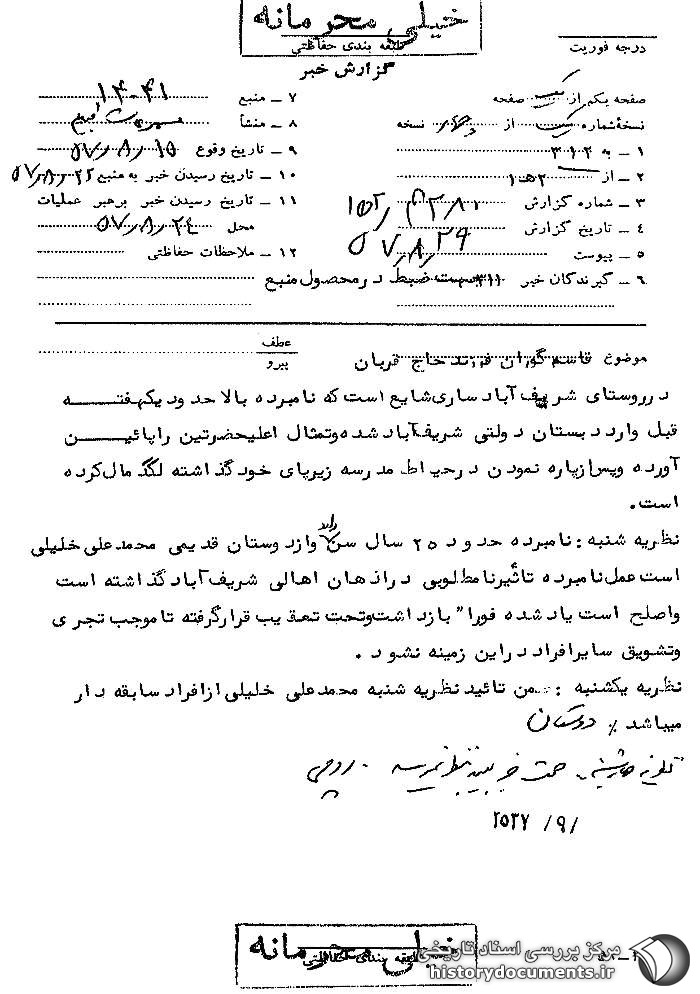 خیلی محرمانه
طبقه بندی حفاظتی
گزارش خبر
درجه فوریت
صفحه یکم از یک صفحه
نسخهٔ شماره یک از چهار نسخه
۱ – به ۳۱۲
۲ – از ۱۰ه۲
۳ – شماره گزارش
۴ – تاریخ گزارش ۵۷٫۸٫۲۹
۵ – پیوست
۶ – گیرندگان خبر ۳۱۱ جهت ضبط در محصول منبع
۷ – منبع ۱۴۰۴۱
۸ – منشأ
۹ – تاریخ وقوع ۵۷٫۸٫۱۵
۱۰ – تاریخ رسیدن خبر به منبع ۵۷٫۸٫۲۲
۱۱ – تاریخ رسیدن خبر برهبر عملیات
محل ۵۷٫۸٫۲۴
۱۲ – ملاحظات حفاظتی
عطف
پیرو
موضوع قاسم گوران فرزند حاج قربان
در روستای شریف آباد ساری شایع است که نامبرده بالا حدود یکهفتـــه
قبل وارد دبستان دولتی شریف آباد شده وتمثال اعلیحضرتین را پائیـــن
آورده وپس از پاره نمودن در حیاط مدرسه زیر پای خود گذاشته لگد مال کرده
است.
نظریه شنبه : نامبرده حدود ۲۵ سال سن دارد واز دوستان قدیمی محمد علی خلیلی
است عمل نامبرده تاثیر نامطلوبی در اذهان اهالی شریف آباد گذاشته است
واصلح است یاد شده فورا" بازداشت وتحت تعقیب قرار گرفته تا موجب تجری
وتشویق سایر افراد در این زمینه نشود .
نظریه یکشنبه : ضمن تائید نظریه شنبه محمد علی خلیلی از افراد سابقه دار
میباشد ٪
روحی
۲۵۳۷/۹/۱
خیلی محرمانه
طبقه بندی حفاظتی
مرکز بررسی اسناد تاریخی
historydocuments.ir